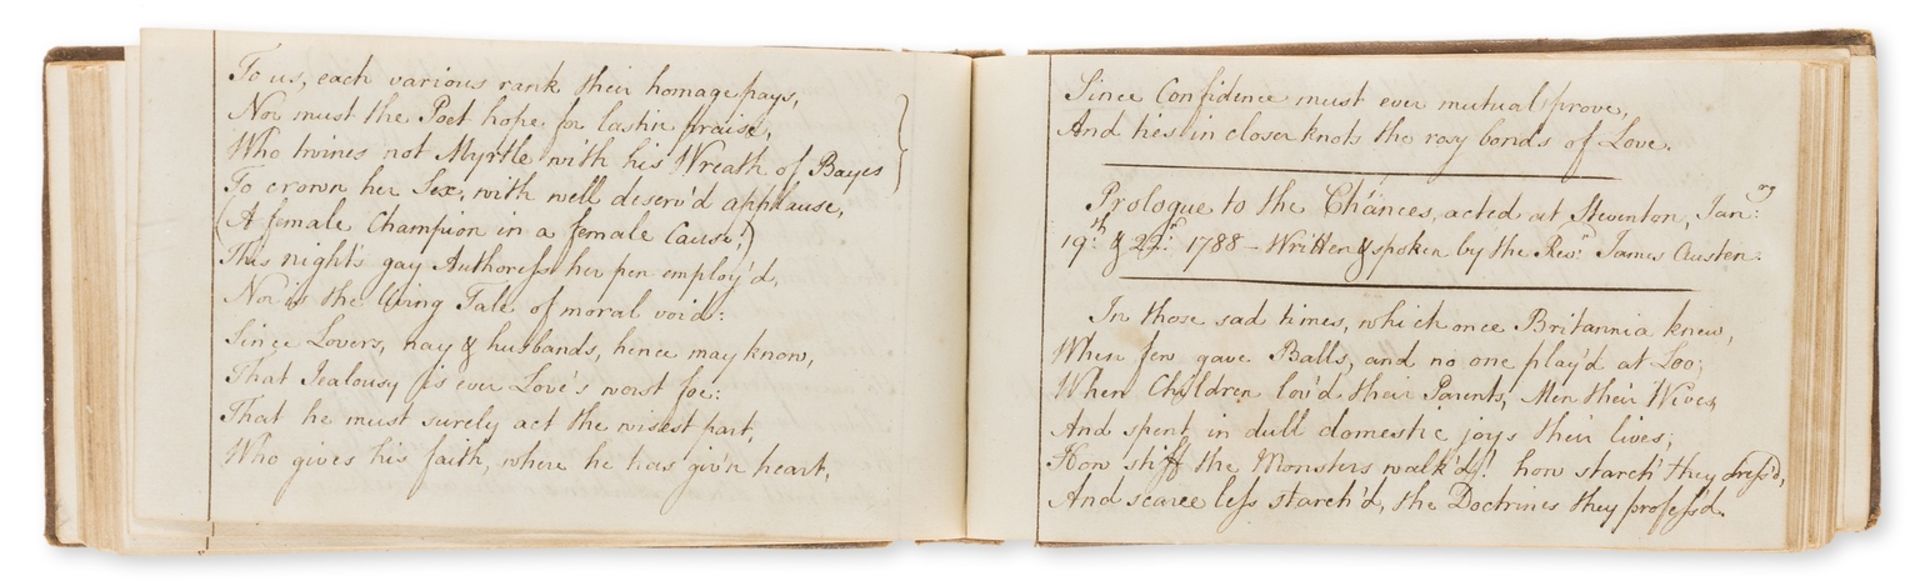 To us, each various rank their homage pays,
Nor must the Poet hope for lastin praise,
Who twines not Myrtle with his Wreath of Bayes
To crown her Sex, with well deserv'd applause,
(A female Champion in a female Cause!)
This night's gay Authoreſs her pen employ'd,
Nor is the living Tale of moral void:
Since Lovers, nay & husbands, hence may know,
That Jealousy is ever Love's worst foe:
That he must surely act the wisest part,
Who gives his faith, where he has giv'n heart,
Since Confidence must ever mutual prove,
And ties in closer knots the rosy bonds of Love.
Prologue to the Chances, acted at Steventon, Jan:ry
19:th & 22:d 1788 - Written & spoken by the Revd: James Austen.
In those sad times, which once Britannia knew,
When few gave Balls, and no one play'd at Loo;
When Children lov'd their Parents, Men their Wives,
And spent in dull domestic joys their lives;
How stiff the Monsters walk'd! how starch' they dreſs'd,
And scarce leſs starch'd, the Doctrines they profeſs'd.